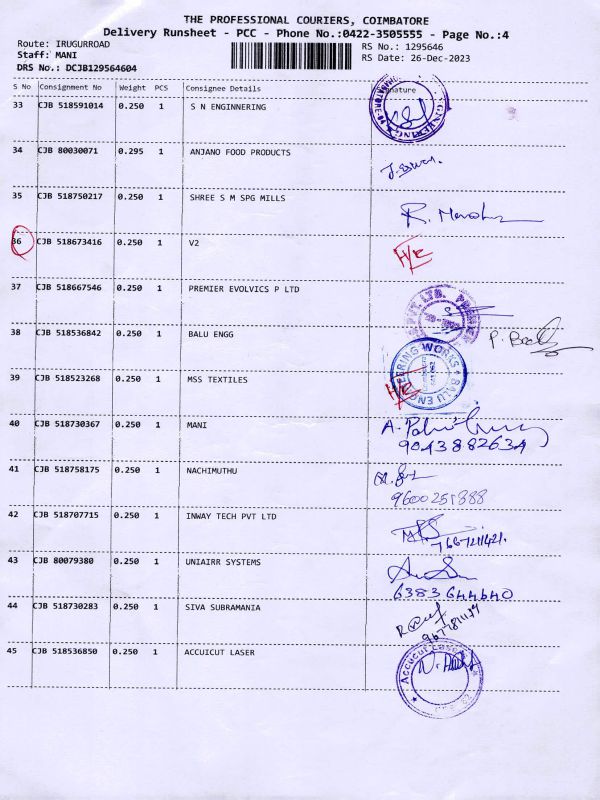 THE PROFESSIONAL COURIERS, COIMBATORE
Delivery Runsheet - PCC - Phone No.:0422-3505555 - Page No.:4
Route: IRUGURROAD RS No.: 1295646
Staff: MANI RS Date: 26-Dec-2023
DRS No.: DCJB129564604
S No Consignment No Weight PCS Consignee Details Signature
33 CJB 518591014 0.250 1 S N ENGINNERING
34 CJB 80030071 0.295 1 ANJANO FOOD PRODUCTS
35 CJB 518750217 0.250 1 SHREE S M SPG MILLS
36 CJB 518673416 0.250 1 V2
37 CJB 518667546 0.250 1 PREMIER EVOLVICS P LTD
PVT LTD. PREMIER
38 CJB 518536842 0.250 1 BALU ENGG
BALU ENGINEERING WORKS
39 CJB 518523268 0.250 1 MSS TEXTILES
40 CJB 518730367 0.250 1 MANI
9043882634
41 CJB 518758175 0.250 1 NACHIMUTHU
9600251888
42 CJB 518707715 0.250 1 INWAY TECH PVT LTD
7667211421.
43 CJB 80079380 0.250 1 UNIAIRR SYSTEMS
6383644640
44 CJB 518730283 0.250 1 SIVA SUBRAMANIA
45 CJB 518536850 0.250 1 ACCUICUT LASER
Accucut Laser